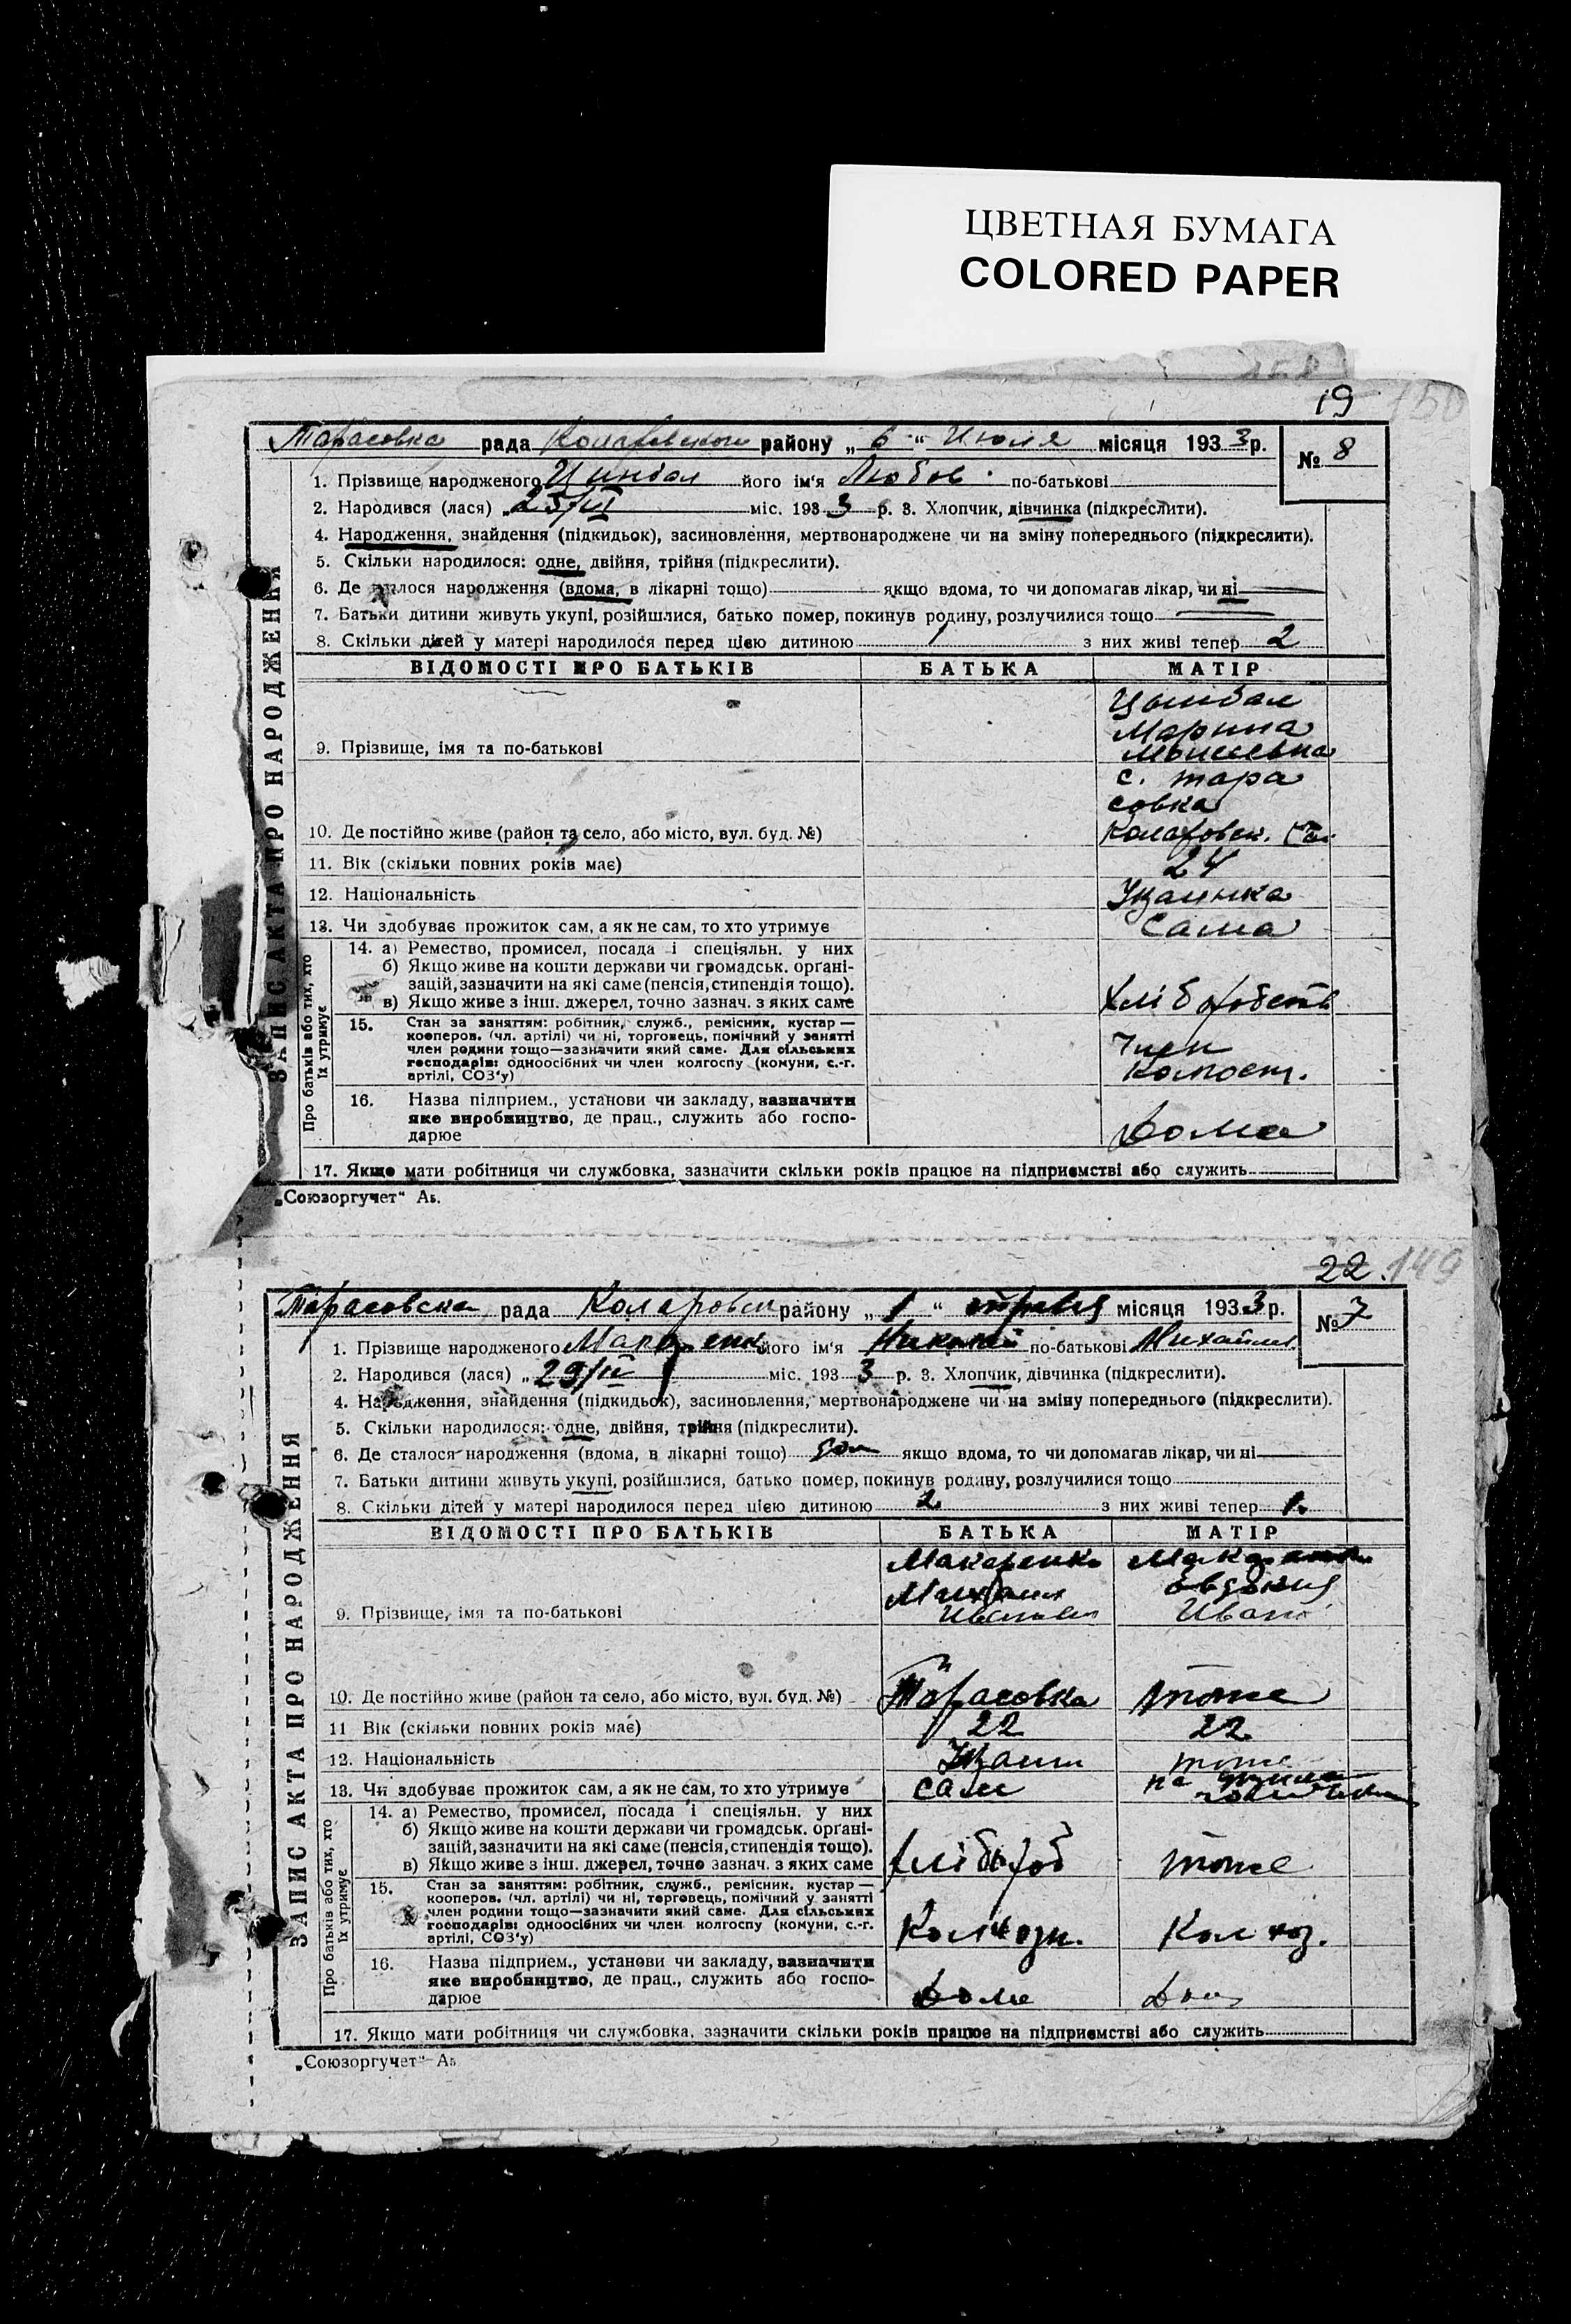 ЦВЕТНАЯ БУМАГА
COLORED PAPER
19 150
Тарасовка рада района „ 6 “ Июля місяця 193 3 р.
№ 8
ЗАПИС АКТА ПРО НАРОДЖЕННЯ
1. Прізвище народженого його ім'я Любов по-батькові
2. Народився (лася) „ міс. 193 3 р. 3. Хлопчик, дівчинка (підкреслити).
4. Народження, знайдення (підкидьок), засиновлення, мертвонароджене чи на зміну попереднього (підкреслити).
5. Скільки народилося: одне, двійня, трійня (підкреслити).
6. Де сталося народження (вдома, в лікарні тощо) якщо вдома, то чи допомагав лікар, чи ні
7. Батьки дитини живуть укупі, розійшлися, батько помер, покинув родину, розлучилися тощо
8. Скільки дітей у матері народилося перед цією дитиною 1 з них живі тепер 2
ВІДОМОСТІ ПРО БАТЬКІВ БАТЬКА МАТІР
Цымбал
Марина
9. Прізвище, імя та по-батькові
с. Тара
совка
10. Де постійно живе (район та село, або місто, вул. буд. №)
11. Вік (скільки повних років має) 24
12. Національність
13. Чи здобуває прожиток сам, а як не сам, то хто утримує Сама
Про батьків або тих, хто їх утримує
14. а) Ремество, промисел, посада і спеціяльн. у них
б) Якщо живе на кошти держави чи громадськ. орґані-
зацій, зазначити на які саме (пенсія, стипендія тощо).
в) Якщо живе з інш. джерел, точно зазнач. з яких саме
15. Стан за заняттям: робітник, служб., ремісник, кустар —
кооперов. (чл. артілі) чи ні, торговець, помічний у занятті
член родини тощо—зазначити який саме. Для сільських
господарів: одноосібних чи член колгоспу (комуни, с.-г.
артілі, СОЗ'у)
Член
16. Назва підприєм., установи чи закладу, зазначити
яке виробництво, де прац., служить або госпо-
дарює Дома
17. Якщо мати робітниця чи службовка, зазначити скільки років працює на підприємстві або служить
„Союзоргучет“ Аз.
22. 149
рада району „ 1 “ травня місяця 193 3 р.
№ 7
ЗАПИС АКТА ПРО НАРОДЖЕННЯ
1. Прізвище народженого його ім'я Николай по-батькові
2. Народився (лася) „ 29/IV міс. 193 3 р. 3. Хлопчик, дівчинка (підкреслити).
4. Народження, знайдення (підкидьок), засиновлення, мертвонароджене чи на зміну попереднього (підкреслити).
5. Скільки народилося: одне, двійня, трійня (підкреслити).
6. Де сталося народження (вдома, в лікарні тощо) дом якщо вдома, то чи допомагав лікар, чи ні
7. Батьки дитини живуть укупі, розійшлися, батько помер, покинув родину, розлучилися тощо
8. Скільки дітей у матері народилося перед цією дитиною 2 з них живі тепер 1
ВІДОМОСТІ ПРО БАТЬКІВ БАТЬКА МАТІР
Макаренко
Михаил Евдокия
9. Прізвище, імя та по-батькові Иван
10. Де постійно живе (район та село, або місто, вул. буд. №) Тарасовка тоже
11 Вік (скільки повних років має) 22 22
12. Національність тоже
13. Чи здобуває прожиток сам, а як не сам, то хто утримує сам
Про батьків або тих, хто їх утримує
14. а) Ремество, промисел, посада і спеціяльн. у них
б) Якщо живе на кошти держави чи громадськ. орґані-
зацій, зазначити на які саме (пенсія, стипендія тощо).
в) Якщо живе з інш. джерел, точно зазнач. з яких саме хлібороб тоже
15. Стан за заняттям: робітник, служб., ремісник, кустар —
кооперов. (чл. артілі) чи ні, торговець, помічний у занятті
член родини тощо—зазначити який саме. Для сільських
господарів: одноосібних чи член колгоспу (комуни, с.-г.
артілі, СОЗ'у) Колхозн. Колхоз.
16. Назва підприєм., установи чи закладу, зазначити
яке виробництво, де прац., служить або госпо-
дарює Дома
17. Якщо мати робітниця чи службовка, зазначити скільки років працює на підприємстві або служить
„Союзоргучет“ Аз